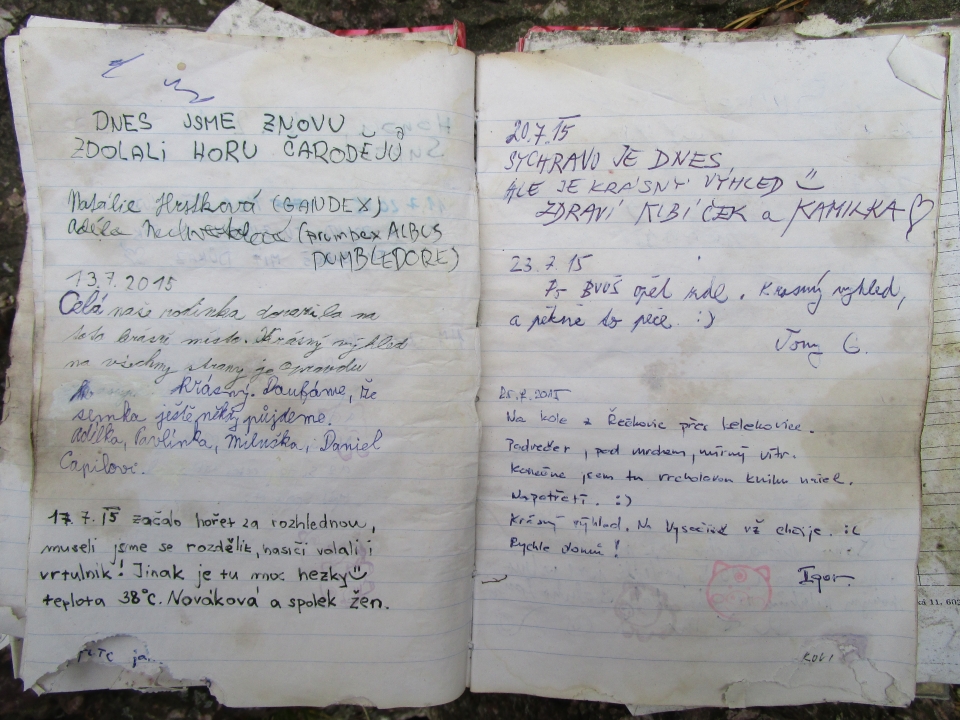 DNES JSME ZNOVU
ZDOLALI HORU ČARODĚJŮ
Natálie Hrstková (GANDEX)
Adéla (prumpex ALBUS
DUMBLEDORE)
13.7.2015
Celá naše rodinka dorazila na
toto krásné místo. Krásný výhled
na všechny strany je opravdu
krásný. Doufáme, že
semka ještě někdy půjdeme.
Adilka, Pavlínka, Miluška, Daniel
Capilovi.
17.7.15 začalo hořet za rozhlednou,
museli jsme se rozdělit, hasiči volali i
vrtulník! Jinak je tu moc hezky
teplota 38°C. Nováková a spolek žen.
20.7.15
SYCHRAVO JE DNES,
ALE JE KRÁSNÝ VÝHLED
ZDRAVÍ KLBÍČEK a KAMILKA
23.7.15
opět zde. Krásný výhled,
a pěkně to peče. :)
Tony G.
25.7.2015
Na kole z Řečkovic přes Lelekovice.
Podvečer, pod mrakem, mírný vítr.
Konečně jsem tu vrcholovou knihu našel.
Napotřetí. :)
Krásný výhled. Na Vysočině už chčije. :(
Rychle domů!
Igor